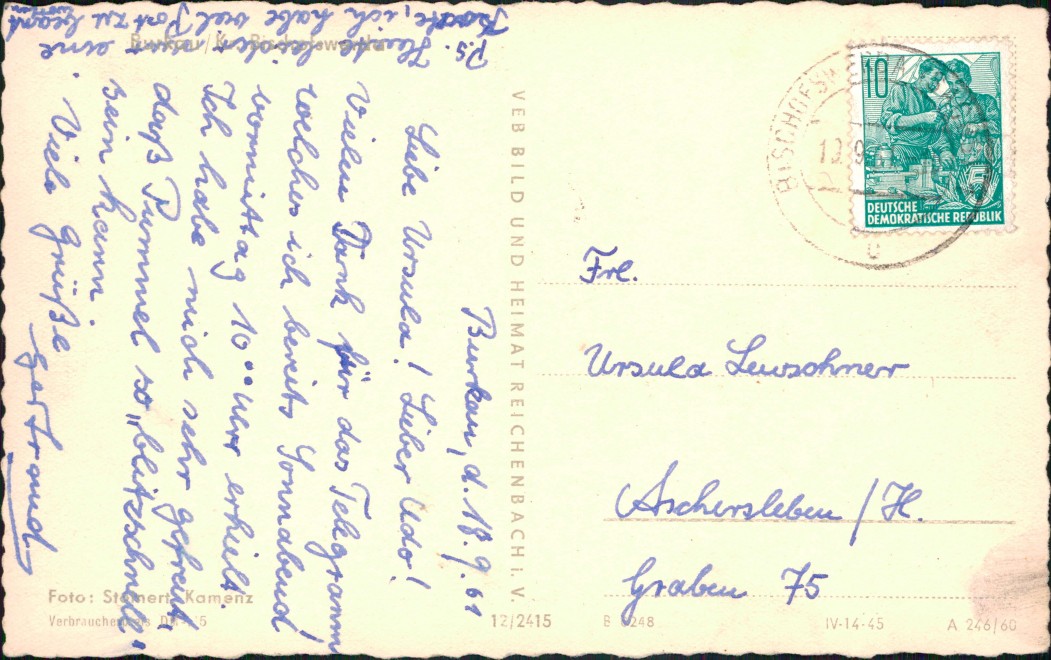 Burkau, d. 18.9.61
Liebe Ursula! Lieber Udo!
Vielen Dank für das Telegramm
welches ich bereits Sonnabend
vormittag 10°° uhr erhielt.
Ich habe mich sehr gefreut,
daß Pummel so „blitzschnell"
sein kann
Viele Grüße
Gertraud
P.S. Heute leider nur eine
Karte, ich habe viel Post zu beant
worten
Burkau/Kr. Bischofswerda
Foto: Steinert, Kamenz
Verbraucherpreis
VEB BILD UND HEIMAT REICHENBACH i. V.
12/2415
BISCHOFSWERDA
10
5
DEUTSCHE
DEMOKRATISCHE REPUBLIK
Frl.
Ursula Lewschner
Aschersleben /H.
Graben 75
IV-14-45
A 246/60